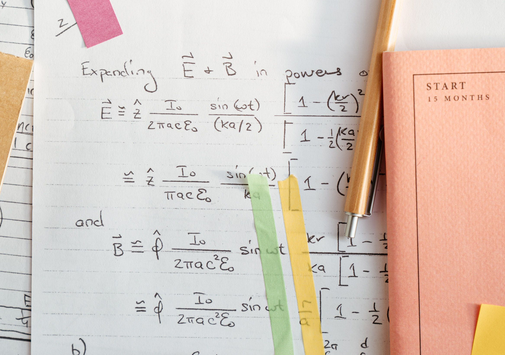 Expending E⃗ + B⃗ in powers o
E⃗ ≅ ẑ I₀/(2πacε₀) sin(ωt)/(ka/2) [1 - (kr/2)² / [1 - ½(ka
≅ ẑ I₀/(πacε₀) sin(ωt)/ka [1 - (k
and
B⃗ ≅ φ̂ I₀/(2πac²ε₀) sin ωt kr/ka [1 - ½ / [1 - ½
≅ φ̂ I₀/(2πac²ε₀) sin ωt r/a [1 - ½
b)
START
15 MONTHS